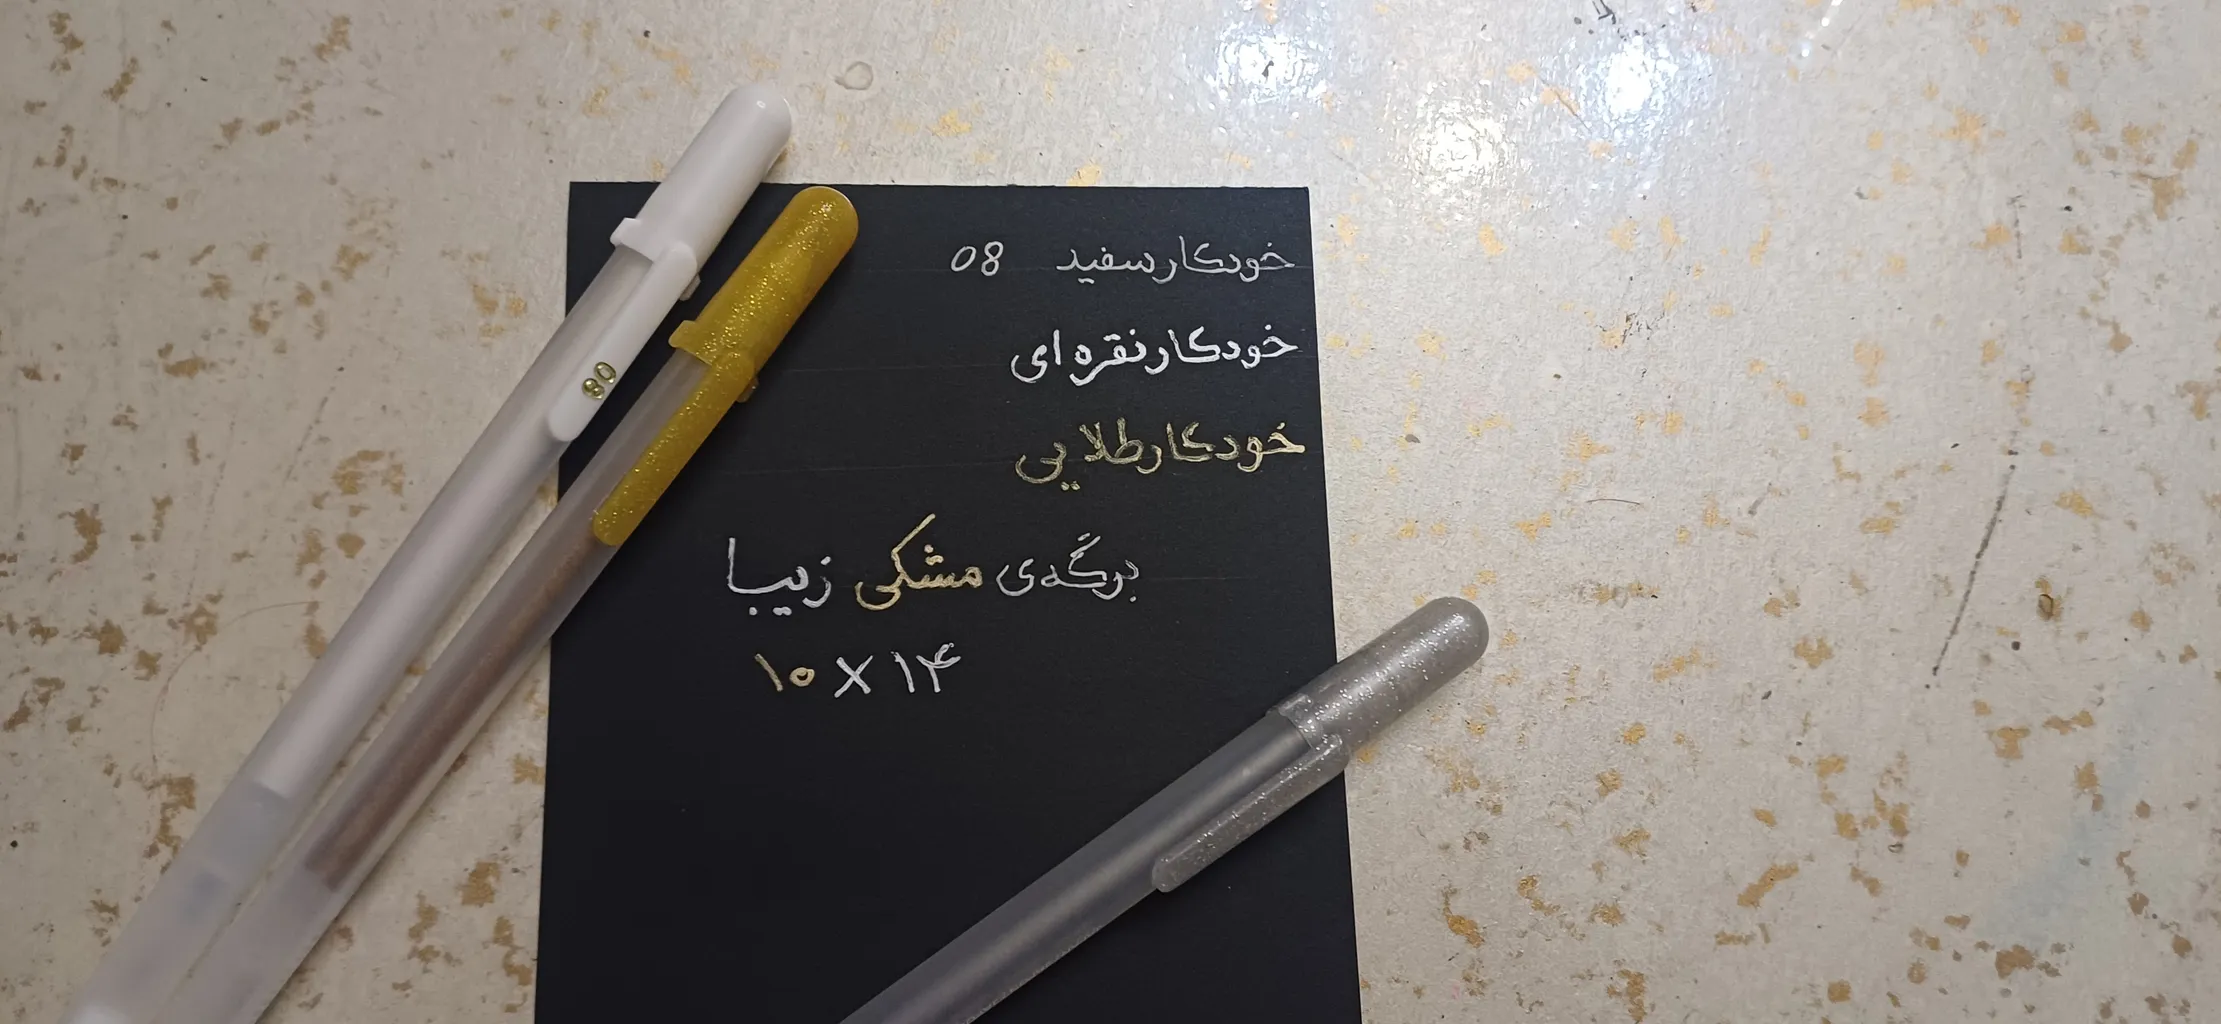 خودکار سفید 08
خودکار نقره ای
خودکار طلایی
برگه‌ی مشکی زیبا
۱۰ X ۱۴
08